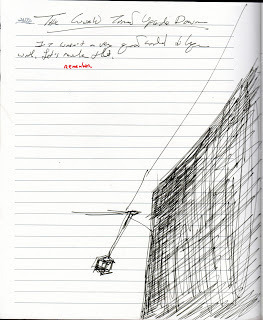 The World Turned Upside Down
It wasn't a very good world to begin
with, let's remember that.
remember